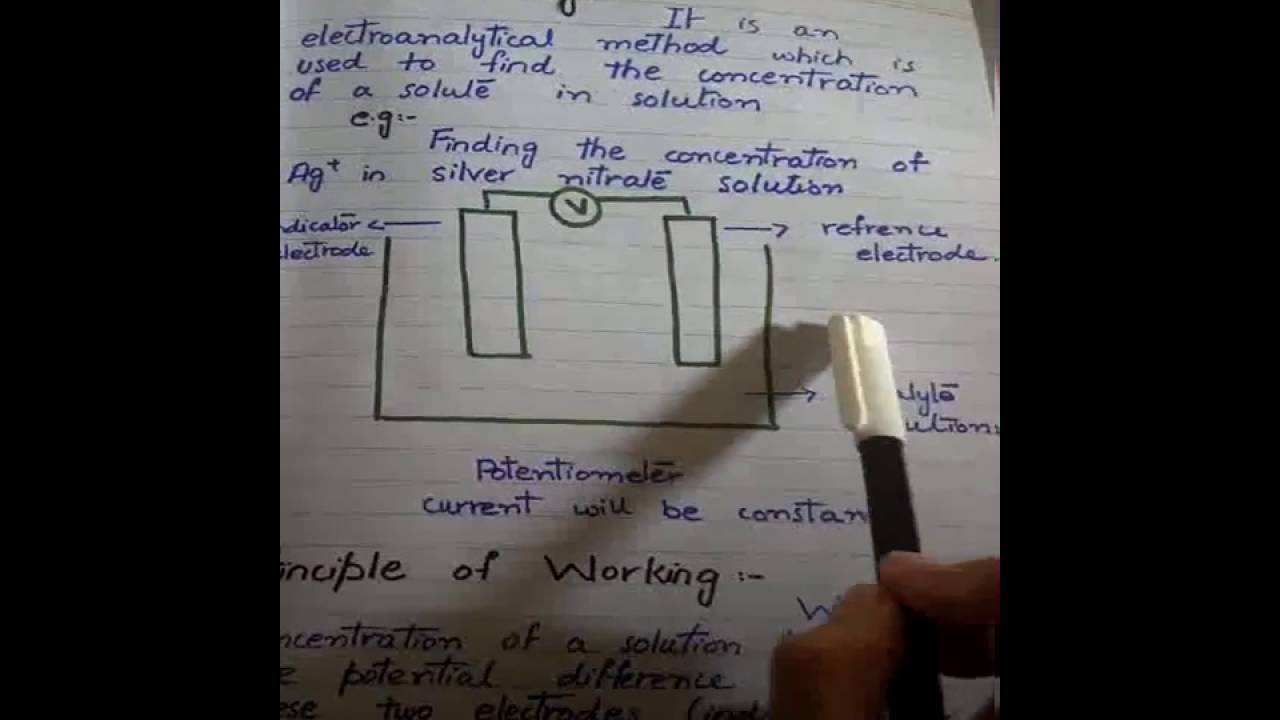 It is an
electroanalytical method which is
used to find the concentration
of a solute in solution
e.g:-
Finding the concentration of
Ag+ in silver nitrate solution
V
dicator
lectrode
refrence
electrode.
lyte
ution.
Potentiometer
current will be constan
inciple of Working :-
ncentration of a solution
e potential difference
ese two electrodes